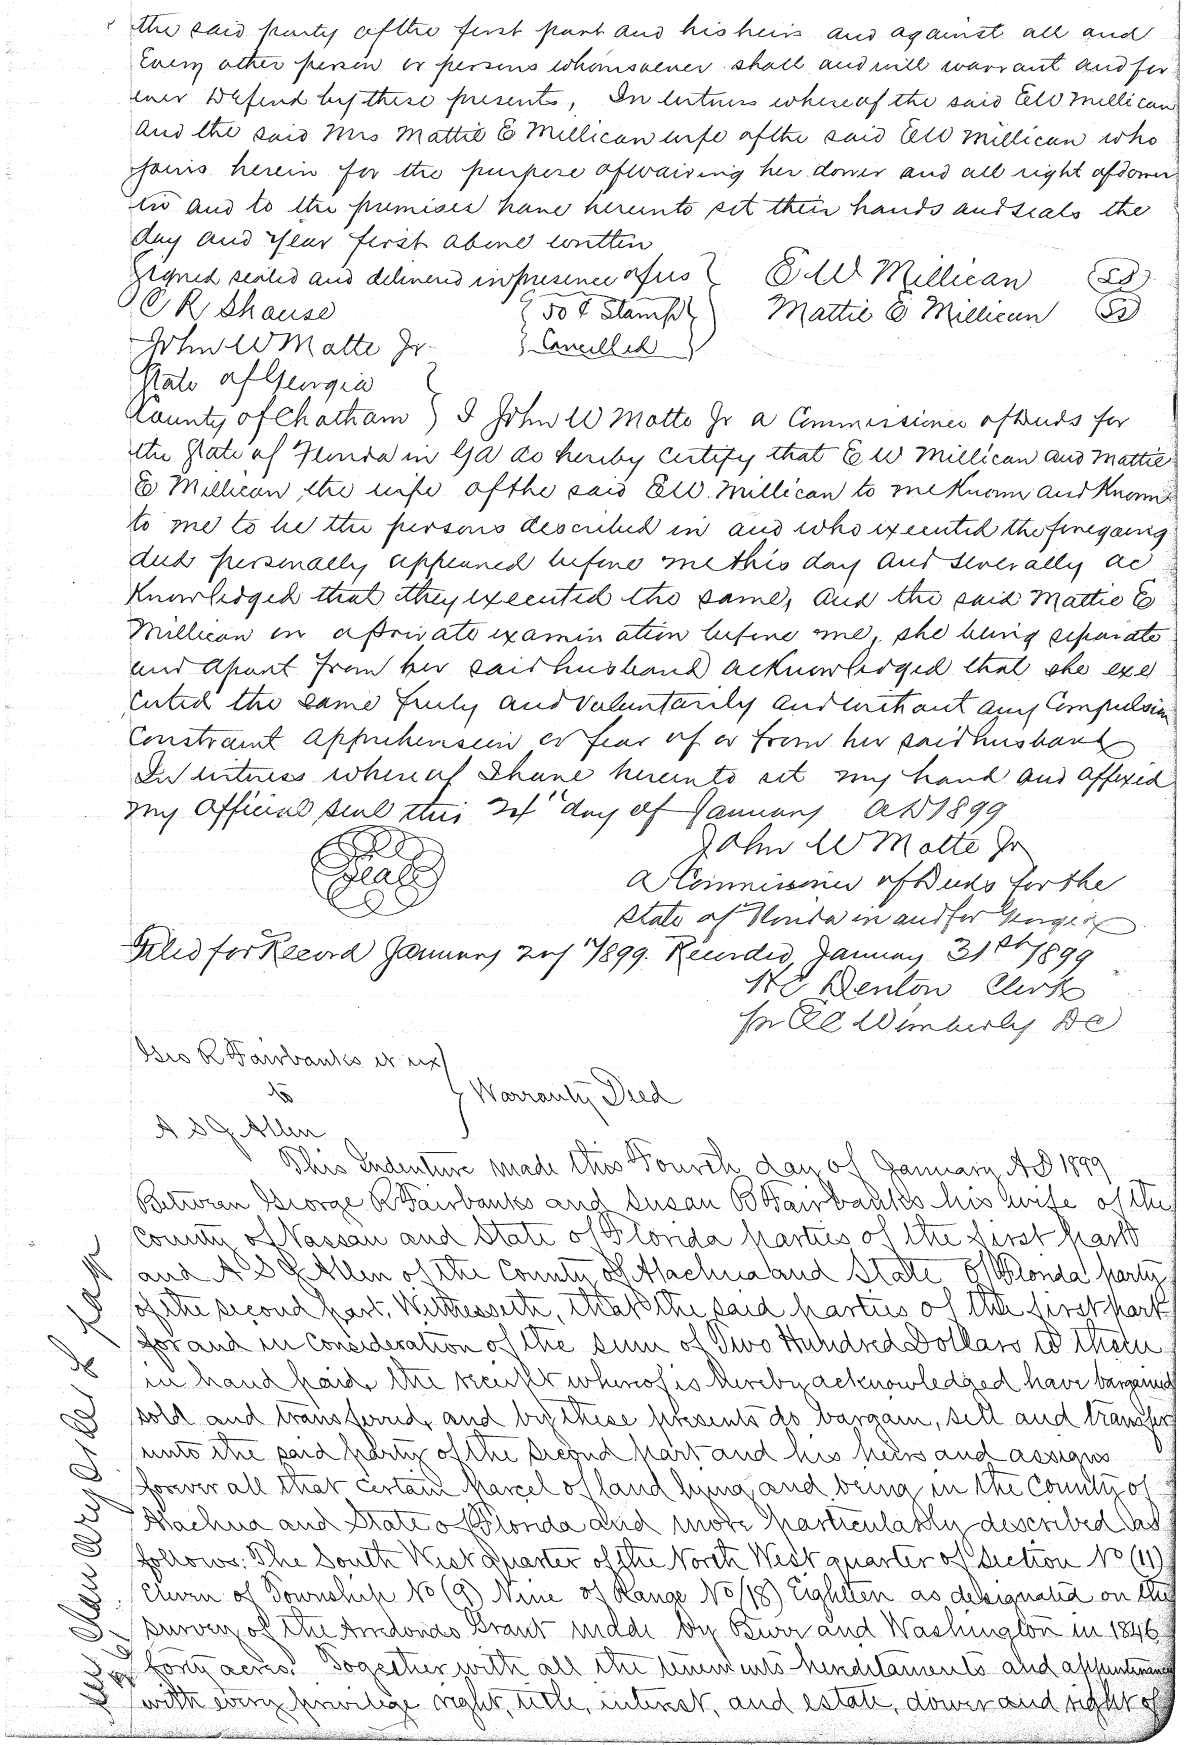 the said party of the first part and his heirs and against all and
Every other person or persons whomsoever shall and will warrant and for
ever Defend by these presents, In witness whereof the said E W Millican
and the said Mrs Mattie E Millican wife of the said E W Millican who
joins herein for the purpose of waiving her dower and all right of dower
in and to the premises have hereunto set their hands and seals the
day and year first above written
Signed sealed and delivered in presence of us } E W Millican (SS)
C R Shause { 50 ¢ Stamp } Mattie E Millican (SS)
John W Motte Jr { Cancelled }
State of Georgia }
County of Chatham } I John W Motte Jr a Commissioner of Deeds for
the State of Florida in GA do hereby certify that E W Millican and Mattie
E Millican the wife of the said E W Millican to me Known and Known
to me to be the persons described in and who executed the foregoing
deed personally appeared before me this day and severally ac
Knowledged that they executed the same, and the said Mattie E
Millican on a private examination before me, she being separate
and apart from her said husband acknowledged that she exe
cuted the same freely and voluntarily and without any Compulsion
Constraint apprehension or fear of or from her said husband
In witness whereof I have hereunto set my hand and affixed
my official seal this 24" day of January AD 1899
John W Motte Jr
Seal a Commissioner of Deeds for the
State of Florida in and for Georgia
Filed for Record January 1899. Recorded January 31st 1899
H C Denton Clerk
pr Wimberly DC
Geo R Fairbanks et ux }
to } Warranty Deed
A S J Allen
This Indenture made this Fourth day of January AD 1899
Between George R Fairbanks and Susan B Fairbanks his wife of the
County of Nassau and State of Florida parties of the first part
and A S J Allen of the County of Alachua and State of Florida party
of the second part. Witnesseth, that the said parties of the first part
for and in consideration of the sum of Two Hundred Dollars to them
in hand paid, the receipt whereof is hereby acknowledged have bargained
sold and transferred, and by these presents do bargain, sell and transfer
unto the said party of the second part and his heirs and assigns
forever all that certain parcel of land lying and being in the County of
Alachua and State of Florida and more particularly described as
follows: The South West quarter of the North West quarter of Section No (11)
Eleven of Township No (9) Nine of Range No (18) Eighteen as designated on the
survey of the Arredondo Grant made by Burr and Washington in 1846
forty acres. Together with all the tenements hereditaments and appurtenances
with every privilege right, title, interest, and estate, dower and right of